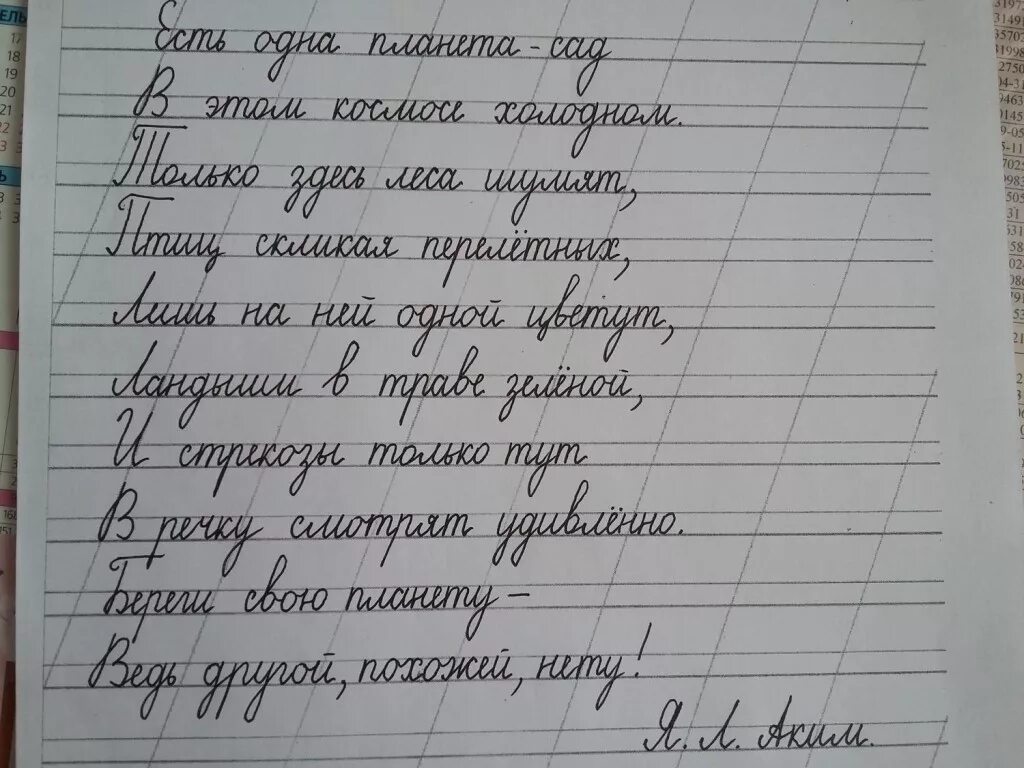 Есть одна планета - сад
В этом космосе холодном.
Только здесь леса шумят,
Птиц скликая перелётных,
Лишь на ней одной цветут,
Ландыши в траве зелёной,
И стрекозы только тут
В речку смотрят удивлённо.
Береги свою планету –
Ведь другой, похожей, нету!
Я. Л. Аким.